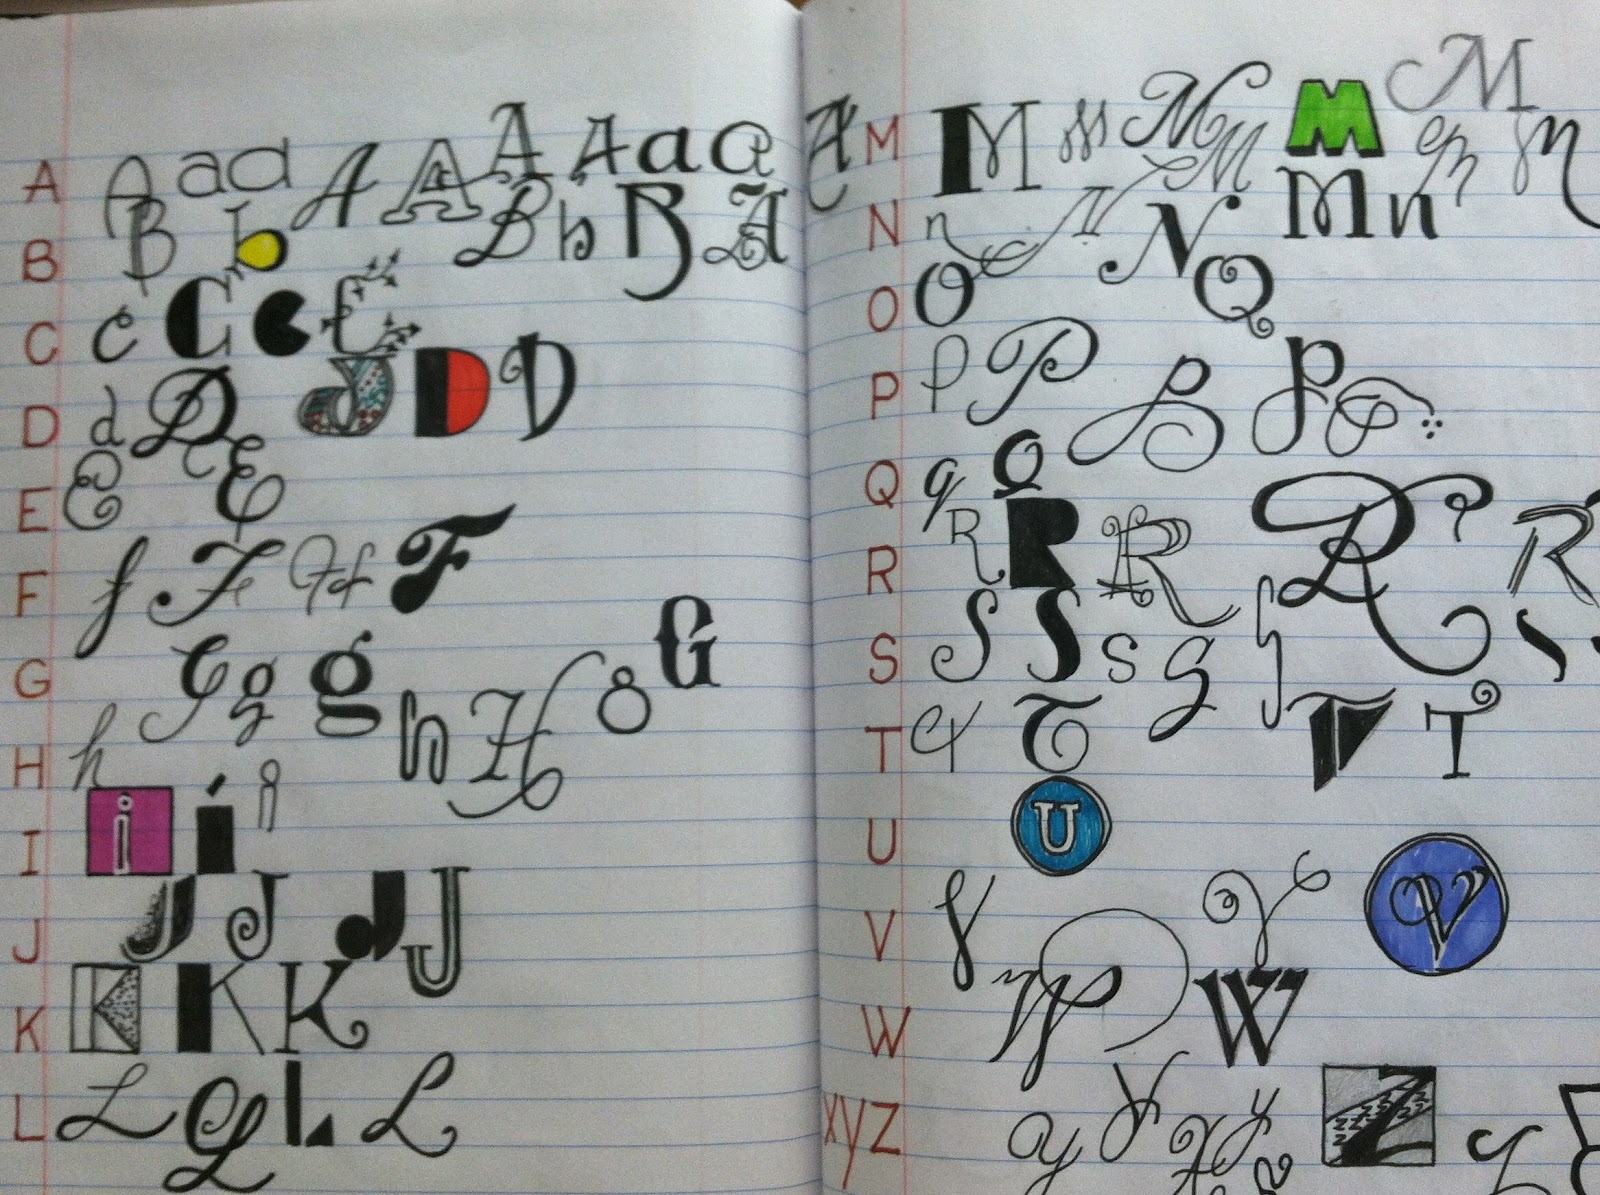 A A a a A A A A a a
B B b B b B A
C c C C C
D d D d D D
E E E
F f F F f F
G G g g 8 G
H h h H
I i i i
J J J J J
K K K K
L L L L L
A
M M M m M M M M m M
N n N N M n
O O Q
P P P P P P
Q q Q
R R R R R R
S S S S S S S
T T T T T
U U
V V V V
W W W
XYZ y Y X y Z